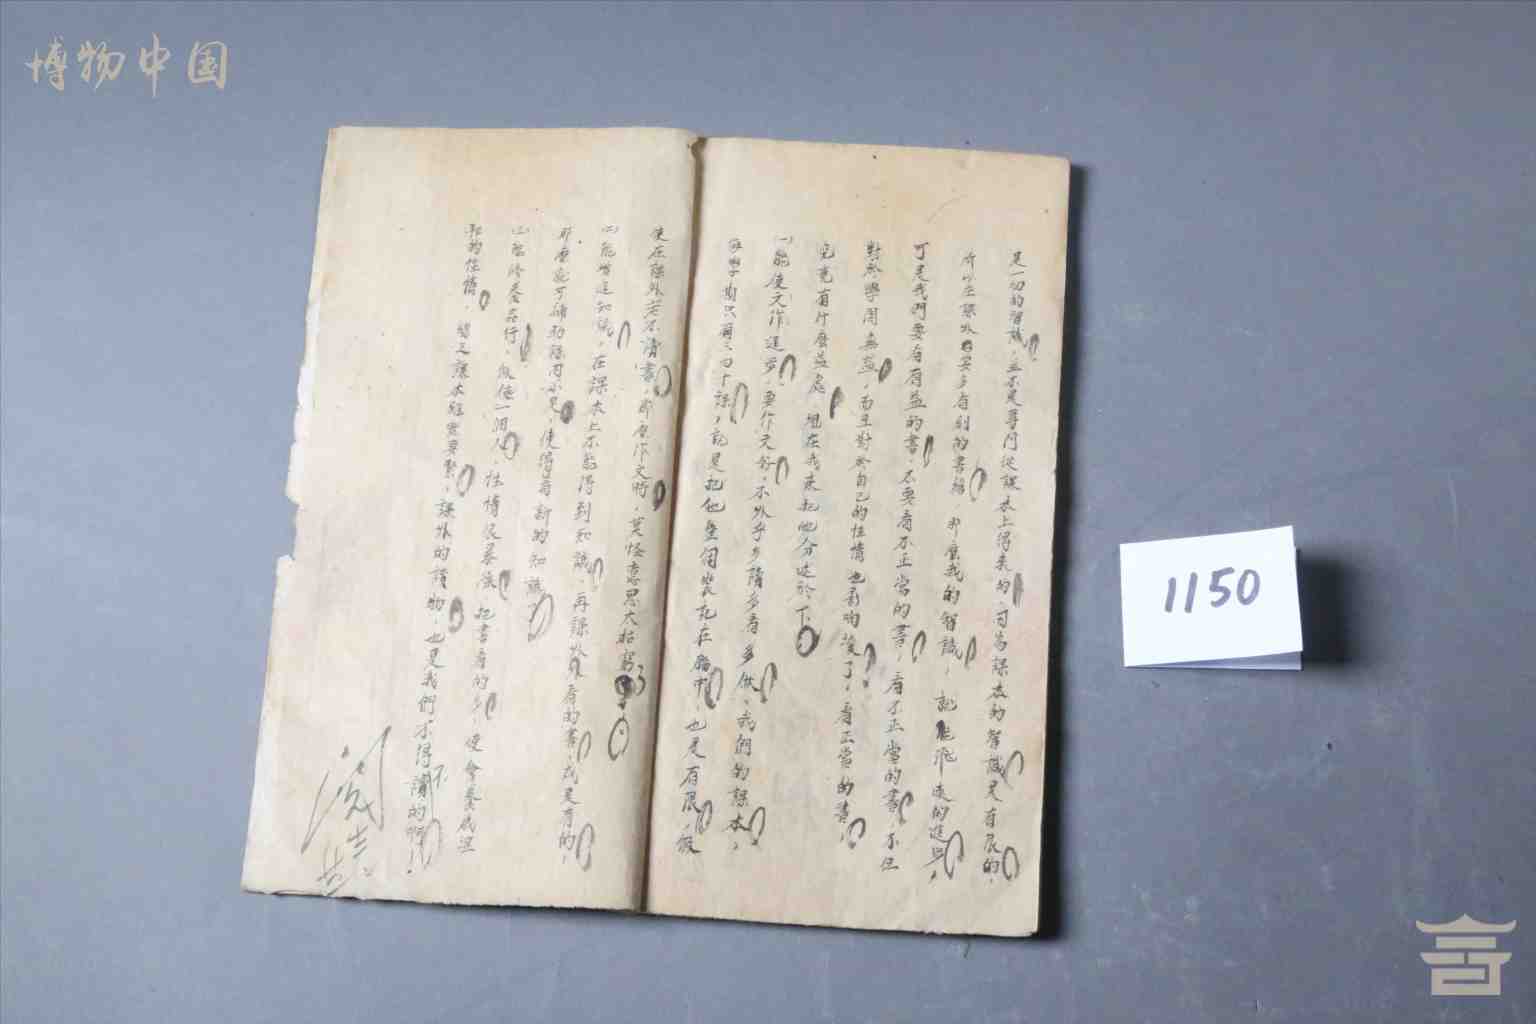 博物中国
是一切的智識，並不是專門從課本上得來的，因為課本的智識是有限的，
所以在課外要多看別的書籍，那麼我的智識，就能飛速的進步，
可是我們要看有益的書，不要看不正當的書，看不正當的書，不但
對於學問無益，而且對於自己的性情也影响
了，看正當的書，
究竟有什麼益處，現在我來把他分述於下
(一)能使文作進步，要作文好，不外乎多讀多看多做，我們的課本，
每學期只有三四十課，就是把他整個裝
在腦中，也是有限，假
使在課外若不讀書，那麼作文時，莫怪意思大枯窮
(二)能增進知識，在課本上不能得到知識，再課外看的書，或是有的，
那麼
可補助課內不足，使得着新的知識，
(三)能修養品行，假使一個人，性情很暴燥，把書看的多，便會養成溫
和的性情，總之課本雖需要緊，課外的讀物，也是我們不得不讀的啊！
閱
1150